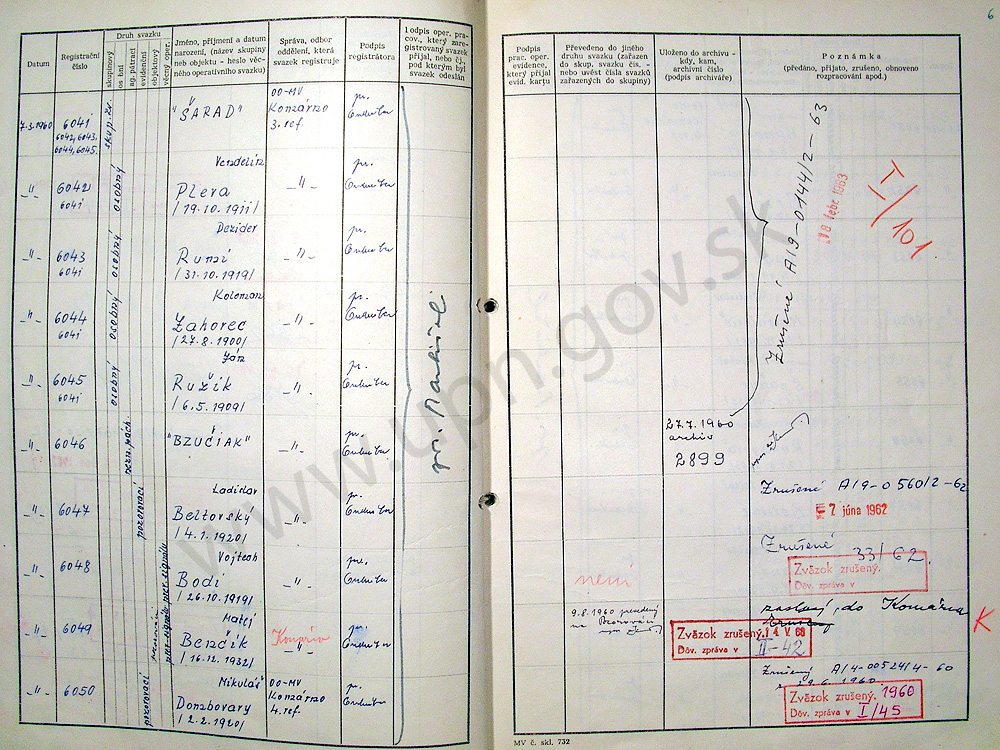 6
Datum
Registrační
číslo
Druh svazku
skupinový
osobní
ag. pátrací
evidenční
objektový
věcný oper.
Jméno, příjmení a datum
narození, (název skupiny
neb objektu - heslo věc-
ného operativního svazku)
Správa, odbor
oddělení, která
svazek registruje
Podpis
registrátora
Podpis oper. pra-
cov., který zare-
gistrovaný svazek
přijal, nebo čj.,
pod kterým byl
svazek odeslán
Podpis
prac. oper.
evidence,
který přijal
evid. kartu
Převedeno do jiného
druhu svazku (zařazen
do skup. svazku čís. -
nebo uvést čísla svazků
zařazených do skupiny)
Uloženo do archivu -
kdy, kam,
archivní číslo
(podpis archiváře)
Poznámka
(předáno, přijato, zrušeno, obnoveno
rozpracování apod.)
7.3.1960
6041
6042, 6043,
6044, 6045.
skup. zv.
"ŠARAD"
OO-MV
Komárno
3. ref.
pr.
Zrušené A/9-0144/2-63
18 febr. 1963
I/101
-"-
6042
6041
osobný
Vendelín
Pleva
/19.10.1911/
-"-
pr.
-"-
6043
6041
osobný
Dezider
Rumi
/31.10.1919/
-"-
pr.
-"-
6044
6041
osobný
Koloman
Zahorec
/27.8.1900/
-"-
pr.
-"-
6045
6041
osobný
Ján
Ružik
/6.5.1909/
-"-
pr.
-"-
6046
"BZUČIAK"
-"-
pr.
27.7.1960
archív
2899
-"-
6047
pozorovací
Ladislav
Beltovský
/4.1.1920/
-"-
pr.
Zrušené A/9-0560/2-62
7 júna 1962
-"-
6048
Vojtech
Bodi
/26.10.1919/
-"-
pr.
není
Zrušené 33/62.
Zväzok zrušený.
Dôv. zpráva v
-"-
6049
Matej
Benčík
/16.12.1932/
-"-
pr.
9.8.1960 prevedený
na
Zväzok zrušený. 14 V. 68
Dôv. zpráva v II-42
zaslaný do Komárna
K
-"-
6050
pozorovací
Mikuláš
Donzbovary
/2.2.1920/
OO-MV
Komárno
4. ref.
pr.
Zrušený A/4-00524/4-60
z 29.6.1960
Zväzok zrušený. 1960
Dôv. zpráva v I/45
MV č. skl. 732
www.upn.gov.sk